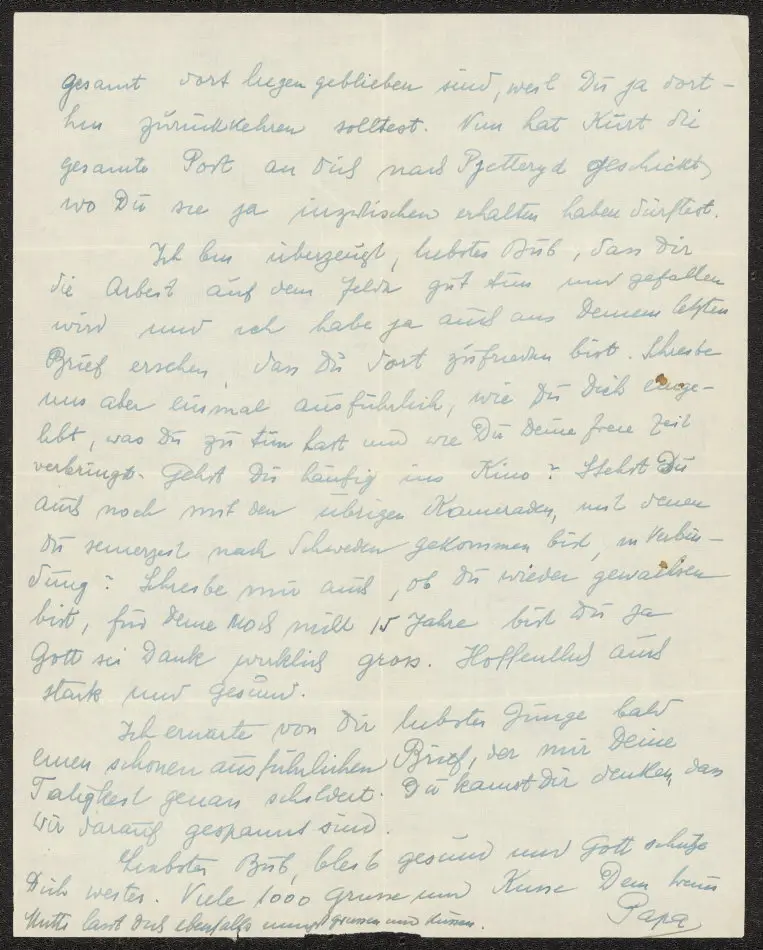 gesamt dort liegen geblieben sind, weil Du ja dort-
hin zurückkehren solltest. Nun hat Kurt die
gesamte Post an Dich nach Pjetteryd geschickt,
wo Du sie ja inzwischen erhalten haben dürftest.
Ich bin überzeugt, liebster Bub, dass Dir
die Arbeit auf dem Felde gut tun und gefallen
wird und ich habe ja auch aus Deinem letzten
Brief ersehen, dass Du dort zufrieden bist. Schreibe
uns aber einmal ausführlich, wie Du Dich einge-
lebt, was Du zu tun hast und wie Du Deine freie Zeit
verbringst. Gehst Du häufig ins Kino? Stehst Du
auch noch mit den übrigen Kameraden, mit denen
Du seinerzeit nach Schweden gekommen bist, in Verbin-
dung? Schreibe mir auch, ob Du wieder gewachsen
bist, für Deine noch nicht 15 Jahre bist Du ja
Gott sei Dank wirklich gross. Hoffentlich auch
stark und gesund.
Ich erwarte von Dir liebster Junge bald
einen schönen ausführlichen Brief, der mir Deine
Tätigkeit genau schildert. Du kannst Dir denken, dass
wir darauf gespannt sind.
Liebster Bub, bleib gesund und Gott schütze
Dich weiter. Viele 1000 Grüsse und Küsse Dein
Papa
Mutti lässt Dich ebenfalls innigst grüssen und küssen.